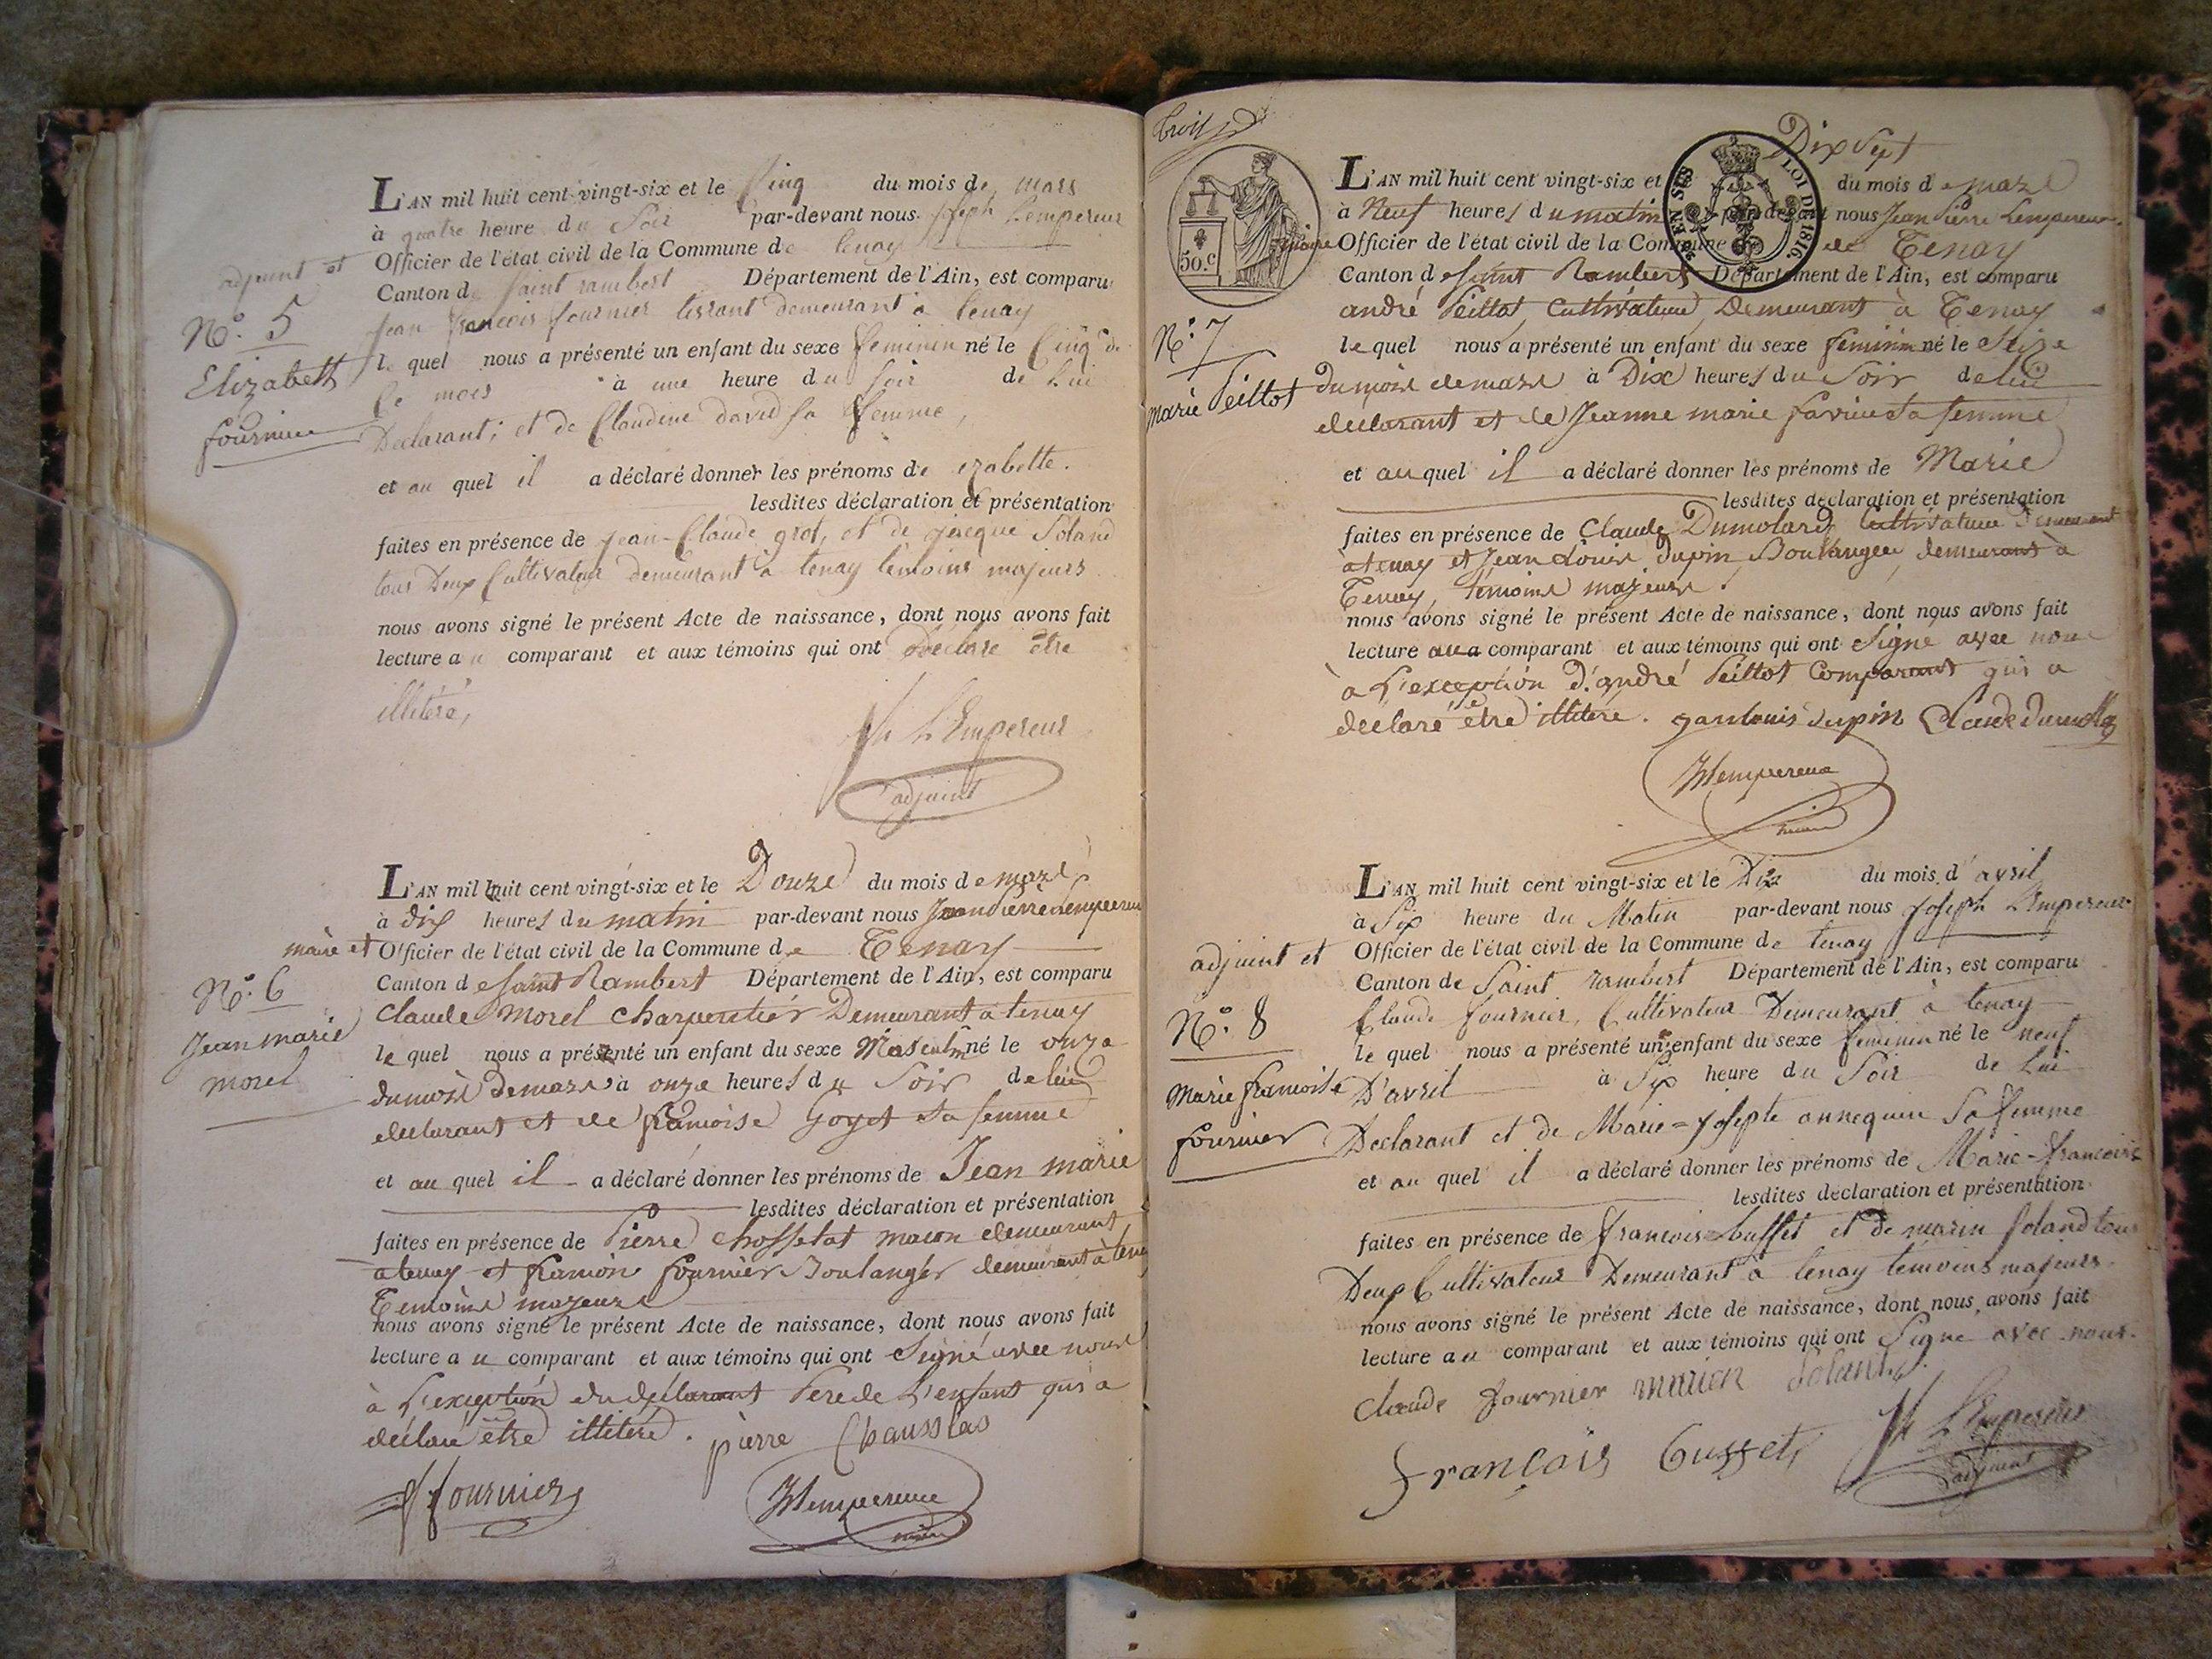 L'AN mil huit cent vingt-six et le Cinq du mois de mars
à quatre heure du Soir par-devant nous Joseph Lempereur
adjoint et Officier de l'état civil de la Commune de tenay
Canton de Saint rambert Département de l'Ain, est comparu
N.° 5
Jean françois fournier tisrant demeurant a tenay
le quel nous a présenté un enfant du sexe feminin né le Cinq de
Elizabeth
Ce mois à une heure du soir de Lui
fournier
Declarant; et de Claudine david sa femme,
et au quel il a déclaré donner les prénoms de izabette.
lesdites déclaration et présentation
faites en présence de Jean-Claude grot, et de jacque Soland
tous Deux Cultivateur demeurant a tenay temoins majeurs
nous avons signé le présent Acte de naissance, dont nous avons fait
lecture au comparant et aux témoins qui ont Déclaré être
illitéré,
Jh LEmpereur
adjoint
L'AN mil huit cent vingt-six et le Douze du mois de mars
à dix heures du matin par-devant nous Jean Pierre Lempereur
maire et Officier de l'état civil de la Commune de Tenay
Canton de Saint Rambert Département de l'Ain, est comparu
N.° 6
Claude Morel charpentier Demeurant a tenay
Jean marie
le quel nous a présenté un enfant du sexe Masculin né le onze
morel
du mois de mars à onze heures du Soir de lui
declarant et de françoise Goyet Sa femme
et au quel il a déclaré donner les prénoms de Jean marie
lesdites déclaration et présentation
faites en présence de Pierre Chosselat macon demeurant
a tenay et framon fournier Boulanger demeurant à tenay
Temoins majeurs
nous avons signé le présent Acte de naissance, dont nous avons fait
lecture au comparant et aux témoins qui ont Signé avec nous
à L'exception du déclarant Pere de L'enfant qui a
déclaré être illitéré. pierre Chausslas
fournier
JPLempereur
maire
trois
Dix Sept
L'AN mil huit cent vingt-six et le du mois de mars
SEN SUS
LOI DE 1816.
à Neuf heures du matin par-devant nous Jean Pierre Lempereur
maire Officier de l'état civil de la Commune de Tenay
50.c
Canton de Saint Rambert Département de l'Ain, est comparu
andré Peillot, Cultivateur, Demeurant à Tenay
N.° 7
le quel nous a présenté un enfant du sexe feminin né le Seize
marie Peillot
du mois de mars à Dix heures du Soir de lui
declarant et de Jeanne marie favier Sa femme
et au quel il a déclaré donner les prénoms de Marie
lesdites déclaration et présentation
faites en présence de Claude Dumolard, Cultivateur Demeurant
a tenay et Jean Louis Dupin Boulanger, demeurant à
Tenay, témoins majeurs.
nous avons signé le présent Acte de naissance, dont nous avons fait
lecture au comparant et aux témoins qui ont Signé avec nous
à L'exception d'andré Peillot Comparant qui a
declaré être illitéré. jan louis dupin Claude dumollar
JPLempereur
maire
L'AN mil huit cent vingt-six et le Dix du mois d'avril
à Six heure du Matin par-devant nous Joseph LEmpereur
adjoint et Officier de l'état civil de la Commune de tenay
Canton de Saint rambert Département de l'Ain, est comparu
N.° 8
Claude fournier, Cultivateur Demeurant à tenay
le quel nous a présenté un enfant du sexe feminin né le neuf
Marie françoise
D'avril à Six heure du Soir de Lui
fournier
Declarant et de Marie=josepte annequin Sa femme
et au quel il a déclaré donner les prénoms de Marie-francoise
lesdites déclaration et présentation
faites en présence de francois=busset et de marin Soland tous
Deux Cultivateur Demeurant a tenay témoins majeurs.
nous avons signé le présent Acte de naissance, dont nous avons fait
lecture au comparant et aux témoins qui ont Signe avec nous.
claude fournier marien Solant
françois bussets
Jh LEmpereur
adjoint